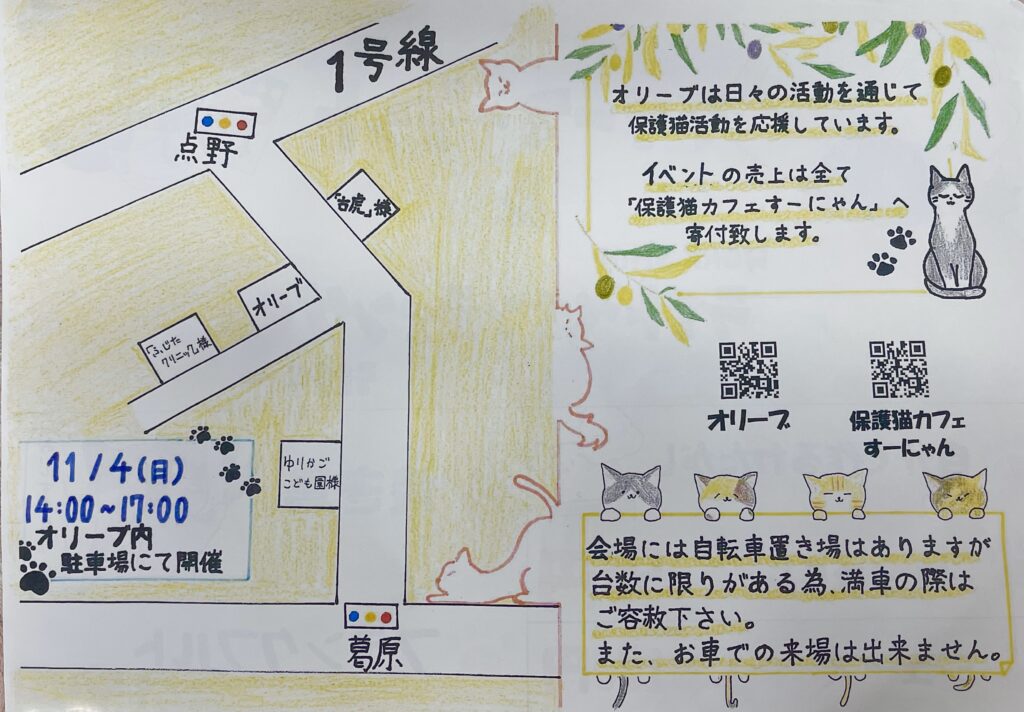 1号線
点野
「古虎」様
オリーブ
「ふじた
クリニック」様
ゆりかご
こども園様
11/4(日)
14:00~17:00
オリーブ内
駐車場にて開催
葛原
オリーブは日々の活動を通じて
保護猫活動を応援しています。
イベントの売上は全て
「保護猫カフェすーにゃん」へ
寄付致します。
オリーブ
保護猫カフェ
すーにゃん
会場には自転車置き場はありますが
台数に限りがある為、満車の際は
ご容赦下さい。
また、お車での来場は出来ません。